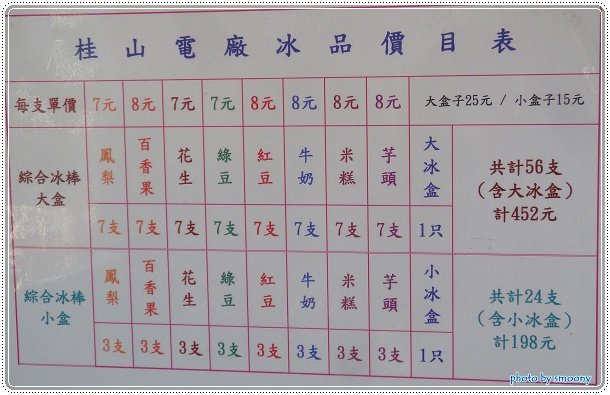 桂山電廠冰品價目表
每支單價 7元 8元 7元 7元 8元 8元 8元 8元 大盒子25元 / 小盒子15元
綜合冰棒大盒 鳳梨 百香果 花生 綠豆 紅豆 牛奶 米糕 芋頭 大冰盒 共計56支(含大冰盒)計452元
7支 7支 7支 7支 7支 7支 7支 7支 1只
綜合冰棒小盒 鳳梨 百香果 花生 綠豆 紅豆 牛奶 米糕 芋頭 小冰盒 共計24支(含小冰盒)計198元
3支 3支 3支 3支 3支 3支 3支 3支 1只
photo by smoony